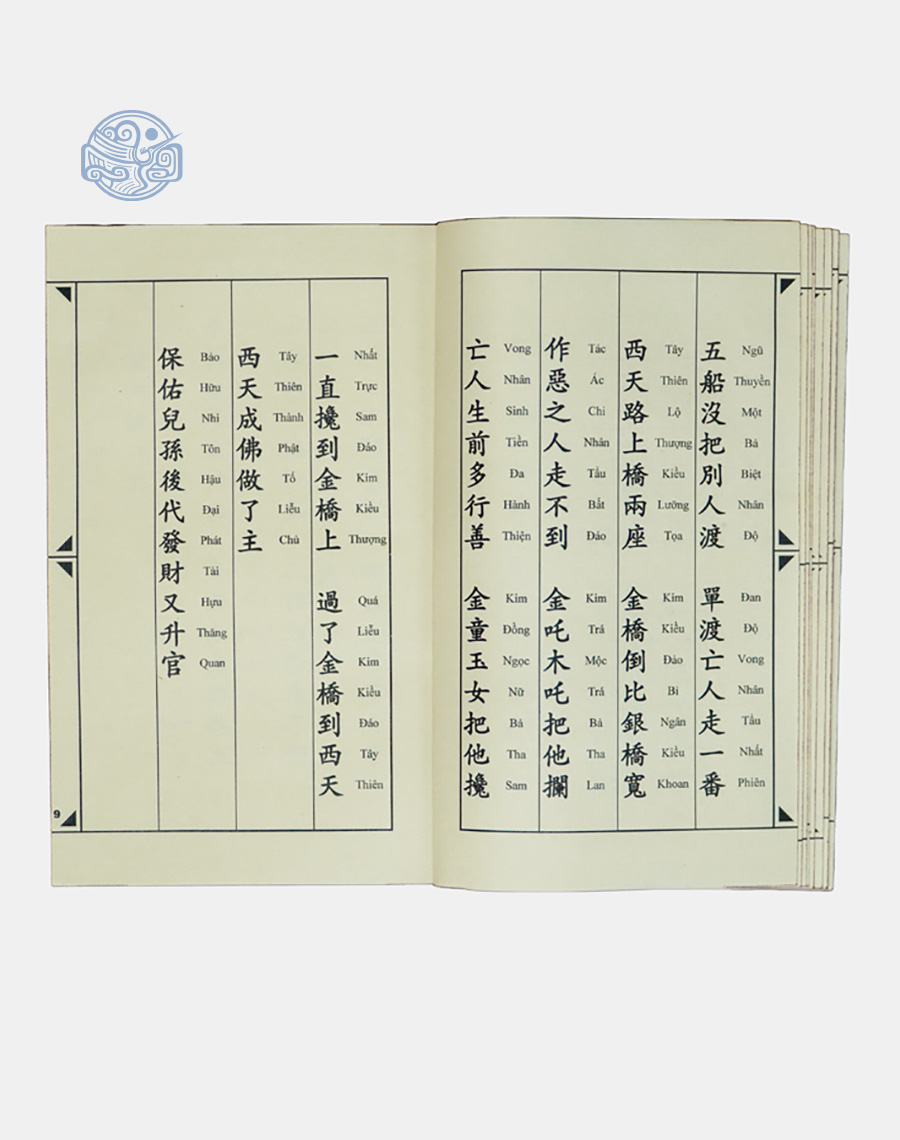 五船沒把別人渡 單渡亡人走一番
Ngũ Thuyền Một Bả Biệt Nhân Độ Đan Độ Vong Nhân Tẩu Nhất Phiên
西天路上橋兩座 金橋倒比銀橋寬
Tây Thiên Lộ Thượng Kiều Lưỡng Tọa Kim Kiều Đảo Bỉ Ngân Kiều Khoan
作惡之人走不到 金吒木吒把他攔
Tác Ác Chi Nhân Tẩu Bất Đáo Kim Trá Mộc Trá Bả Tha Lan
亡人生前多行善 金童玉女把他攙
Vong Nhân Sinh Tiền Đa Hành Thiện Kim Đồng Ngọc Nữ Bả Tha Sam
一直攙到金橋上 過了金橋到西天
Nhất Trực Sam Đáo Kim Kiều Thượng Quá Liễu Kim Kiều Đáo Tây Thiên
西天成佛做了主
Tây Thiên Thành Phật Tố Liễu Chủ
保佑兒孫後代發財又升官
Bảo Hữu Nhi Tôn Hậu Đại Phát Tài Hựu Thăng Quan
9